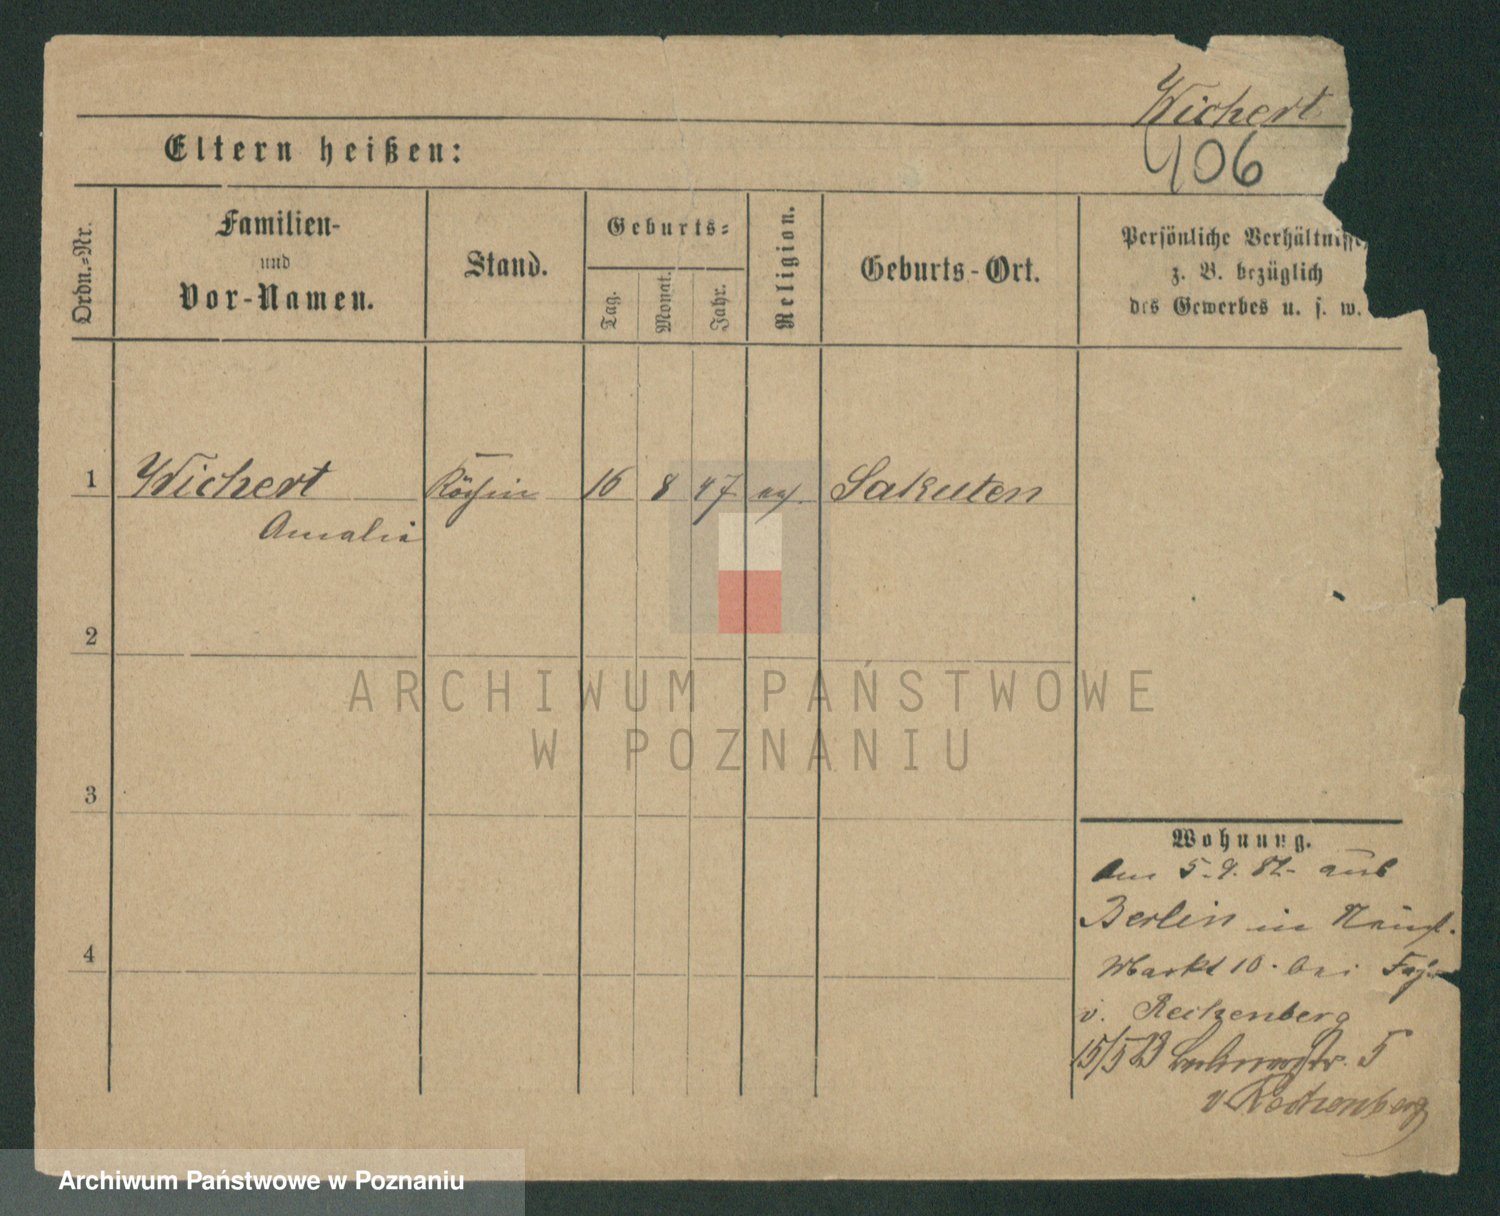 Wichert
106
Eltern heißen:
Ordn.-Nr.
Familien-
und
Vor-Namen.
Stand.
Geburts-
Tag.
Monat.
Jahr.
Religion.
Geburts-Ort.
Persönliche Verhältnisse
z. B. bezüglich
des Gewerbes u. s. w.
1 Wichert Köchin 16 8 47 ev. Sakuten
Amalia
2
3
4
Wohnung.
Am 5.9.82. aus
Berlin in
Markt 10. bei
v. Reitzenberg
15/5 5
v.
ARCHIWUM PAŃSTWOWE
W POZNANIU
Archiwum Państwowe w Poznaniu